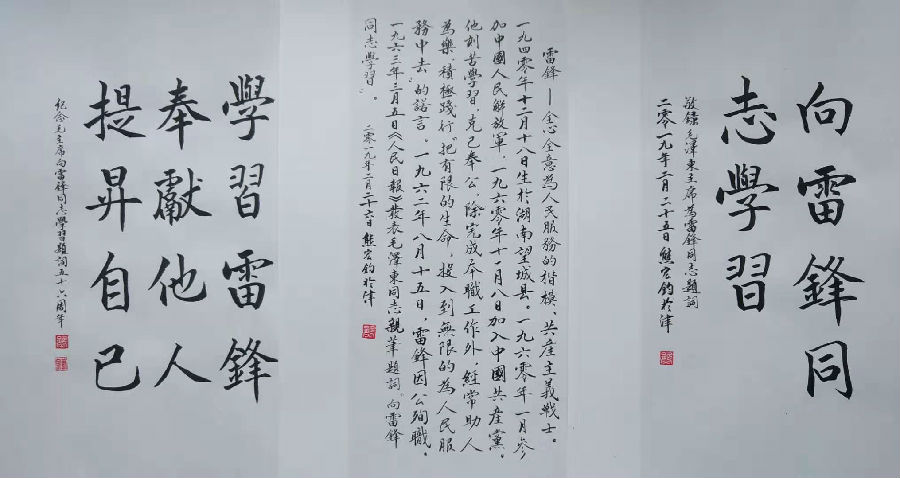 向雷鋒同
志學習
敬錄毛澤東主席為雷鋒同志題詞
二零一九年二月二十五日熊宏鈞於津
雷鋒——全心全意為人民服務的楷模、共產主義戰士。
一九四零年十二月十八日生於湖南望城县。一九六零年一月參
加中國人民解放軍，一九六零年十一月八日加入中國共產黨。
他刻苦學習，克己奉公，除完成本職工作外，經常助人
為樂，積極踐行“把有限的生命，投入到無限的為人民服
務中去”的諾言。一九六二年八月十五日，雷鋒因公殉職。
一九六三年三月五日《人民日報》發表毛澤東同志親筆題詞“向雷鋒
同志學習”。
二零一九年二月二十六日熊宏鈞於津
學習雷鋒
奉獻他人
提昇自己
紀念毛主席向雷鋒同志學習題詞五十六周年